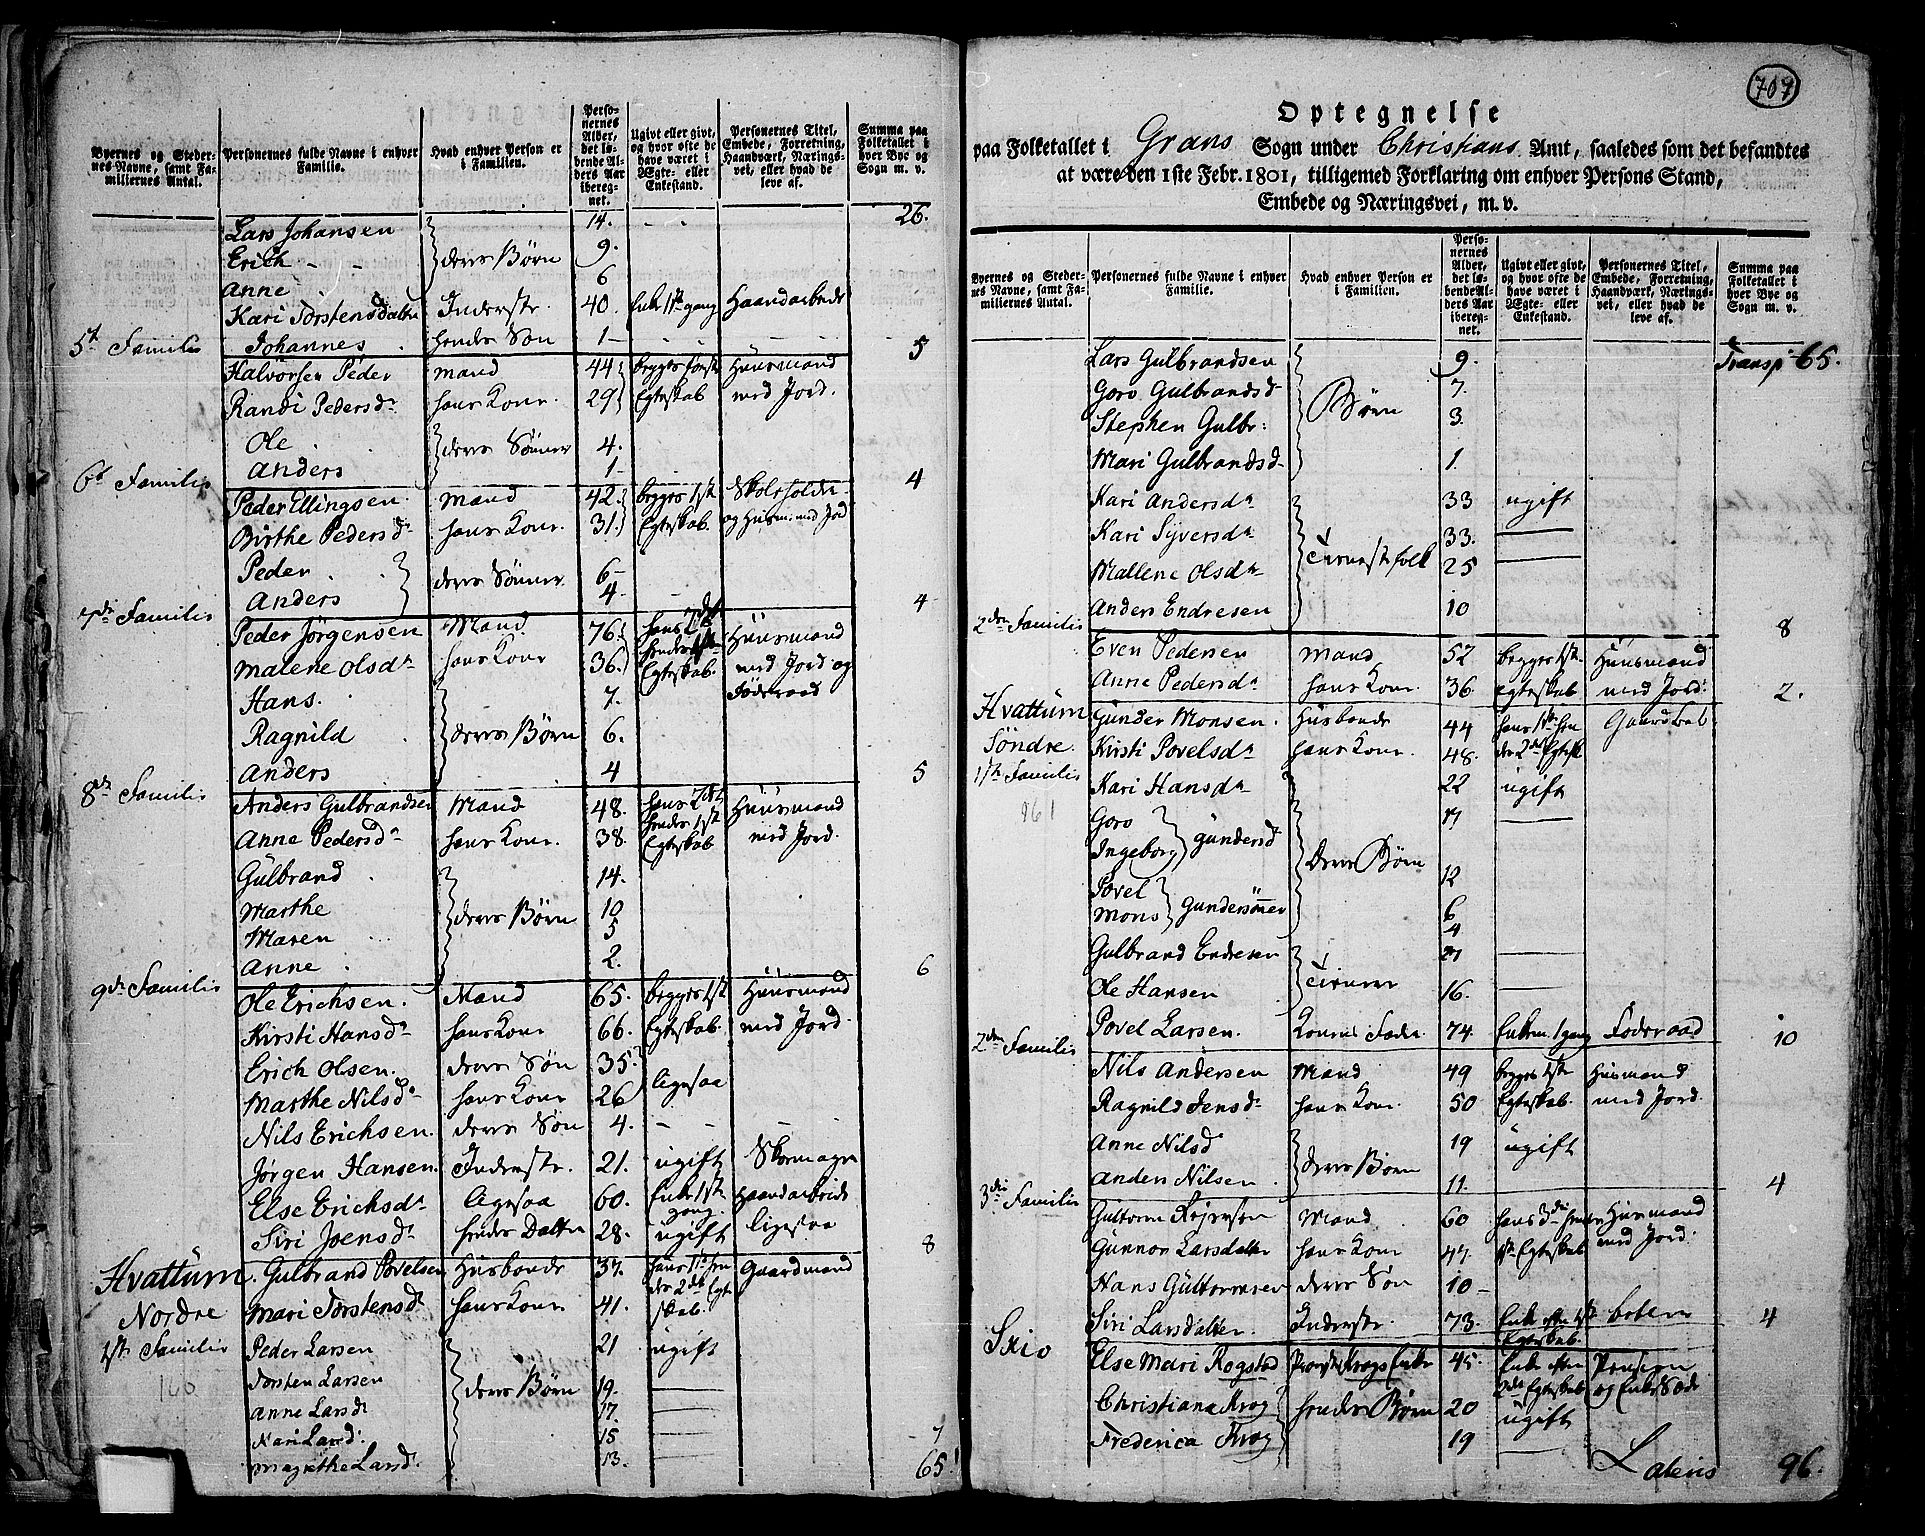 Byernes og Steder-
nes Navne, samt Fa-
miliernes Antal.
Personernes fulde Navne i enhver
Familie.
Hvad enhver Person er
i Familien.
Perso-
nernes
Alder,
det lø-
bende Al-
ders Aar
iberegnet.
Ugivt eller givt,
og hvor ofte de
have været i
Ægte- eller
Enkestand.
Personernes Titel,
Embede, Forretning,
Haandværk, Nærings-
vei, eller hvad de
leve af.
Summa paa
Folketallet i
hver Bye og
Sogn m. v.
Lars Johansen 14. - - 26.
Erich - - deres Børn 9.
Anne 6
Kari Torstensdatter Inderste 40. Enke 1ste gang Haandarbeide
5te Familie Johannes hendes Søn 1 - 5
Halvorsen Peder mand 44 begges første Huusmand
Randi Pedersdr hans Kone. 29 Egteskab med Jord.
Ole deres Sønner 4.
Anders 1
6te Familie 4
Peder Ellingsen mand 42. begges 1ste Skoleholder
Birthe Pedersdr hans Kone. 31. Egteskab. og Huusm. med Jord
Peder deres Sønner 6
Anders 4
7de Familie 4
Peder Jørgensen Mand 76. hans 2det Huusmand
Malene Olsdr hans Kone 36. hendes 1ste Egteskab. med Jord og
Hans. 7. Føderaad
Ragnild deres Børn 6.
Anders 4
8de Familie 5
Anders Gulbrandsen Mand 48. hans 2det Huusmand
Anne Pedersdr hans Kone. 38. hendes 1ste Egteskab med Jord.
Gulbrand 14.
Marthe deres Børn 10
Maren 5
Anne 2.
9de Familie 6
Ole Erichsen. Mand 65. begges 1ste Huusmand
Kirsti Hansdr hans Kone 66. Egteskab. med Jord.
Erich Olsen. deres Søn 35
Marthe Nilsdr hans Kone 26 ligesaa
Nils Erichsen. deres Søn 4. - -
Jørgen Hansen. Inderste. 21. ugift Skomager
Else Erichsdr ligesaa 60. Enke 1ste gang. Haandarbeide
Siri Joensdr hendes Datter 28. ugift ligesaa
8
Hvattum Gulbrand Povelsen Husbonde 37. hans 1ste hen Gaardmand
Nordre Mari Torstensdr hans Kone 41. des 2det Egteskab.
1ste Familie Peder Larsen 21 ugift
160 Torsten Larsen deres Børn 19.
Anne Larsdr 17.
Kari Larsd. 15
Magrethe Larsd. 13.
7
65.
709
Optegnelse
paa Folketallet i Grans Sogn under Christians Amt, saaledes som det befandtes
at være den 1ste Febr. 1801, tilligemed Forklaring om enhver Persons Stand,
Embede og Næringsvei, m. v.
Byernes og Steder-
nes Navne, samt Fa-
miliernes Antal.
Personernes fulde Navne i enhver
Familie.
Hvad enhver Person er
i Familien.
Perso-
nernes
Alder,
det lø-
bende Al-
ders Aar
iberegnet.
Ugivt eller givt,
og hvor ofte de
have været i
Ægte- eller
Enkestand.
Personernes Titel,
Embede, Forretning,
Haandværk, Nærings-
vei, eller hvad de
leve af.
Summa paa
Folketallet i
hver Bye og
Sogn m. v.
Lars Gulbrandsen 9. Transp 65.
Goro Gulbrandsd Børn 7.
Stephen Gulbr: 3.
Mari Gulbrandsd 1.
Kari Andersdr 33 ugift
Kari Syversdr 33.
Mallene Olsdr Tienestefolk 25
Anders Endresen 10
2den Familie 8
Even Pedersen Mand 52 begges 1ste Huusmand
Anne Pedersdr hans Kone. 36. Egteskab med Jord. 2.
Hvattum Gunder Monsen. Husbonde 44 hans 1ste hen Gaardbr.
Søndre. Kirsti Povelsdr hans Kone. 48. des 2det Egtesk
1ste Familie Kari Hansdr 22 ugift
161 Goro 17
Ingeborg gundersd deres Børn 12
Povel 6
Mons gundersønner 4
Gulbrand Endresen 21
Ole Hansen Tienere 16.
Povel Larsen. Konens Fader 74. Enkem. 1 gang Føderaad
2den Familie 10
Nils Andersen Mand 49 begges 1ste Husmand
Ragnild Jensdr hans Kone. 50 Egteskab. med Jord.
Anne Nilsd deres Børn 19 ugift
Anders Nilsen. 11.
3die Familie 4
Guttorm Mand 60 hans 3die hendes Husmand
Gunnor Larsdatter hans Kone 47. 1ste Egteskab med Jord.
Hans Guttormsen deres Søn 10
Siri Larsdatter. Inderste. 73. Enke efter 1ste Egteskab. betler 4
Skio Else Mari Rogstad Provst Krogs Enke 45. Enke efter Pension
Christiana Krog hendes Børn 20 2det Egteskab og Enke Sæde
Frederica Krog 19 ugift
Lateris 96.